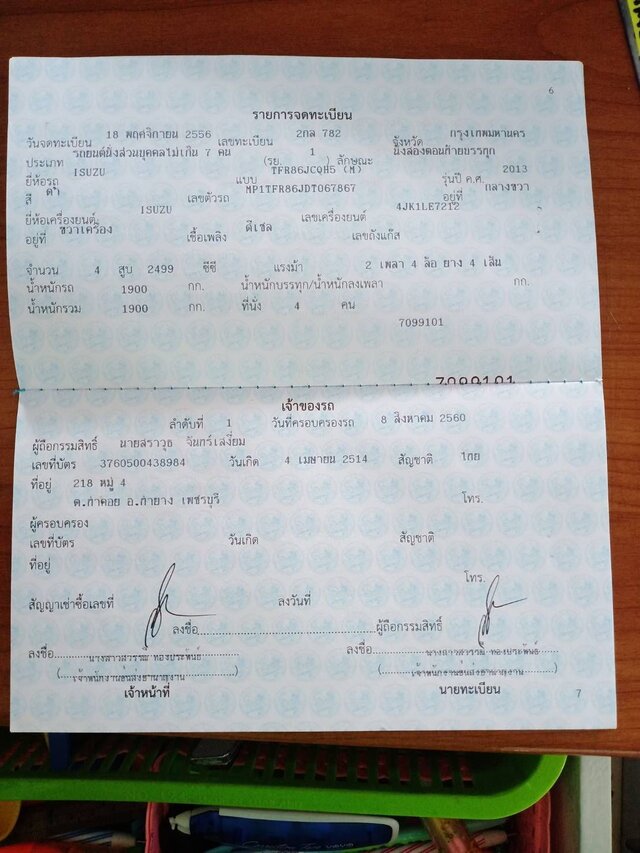 6
รายการจดทะเบียน
วันจดทะเบียน 18 พฤศจิกายน 2556 เลขทะเบียน 2กล 782 จังหวัด กรุงเทพมหานคร
ประเภท รถยนต์นั่งส่วนบุคคลไม่เกิน 7 คน (รย. 1 ) ลักษณะ นั่งสองตอนท้ายบรรทุก
ยี่ห้อรถ ISUZU แบบ TFR86JCQH5 (M) รุ่นปี ค.ศ. 2013
สี ดำ เลขตัวรถ MP1TFR86JDT067867 อยู่ที่ กลางขวา
ยี่ห้อเครื่องยนต์ ISUZU เลขเครื่องยนต์ 4JK1LE7212
อยู่ที่ ขวาเครื่อง เชื้อเพลิง ดีเซล เลขถังแก๊ส
จำนวน 4 สูบ 2499 ซีซี แรงม้า 2 เพลา 4 ล้อ ยาง 4 เส้น
น้ำหนักรถ 1900 กก. น้ำหนักบรรทุก/น้ำหนักลงเพลา กก.
น้ำหนักรวม 1900 กก. ที่นั่ง 4 คน
7099101
7099101
เจ้าของรถ
ลำดับที่ 1 วันที่ครอบครองรถ 8 สิงหาคม 2560
ผู้ถือกรรมสิทธิ์ นายสราวุธ จันทร์เสงี่ยม
เลขที่บัตร 3760500438984 วันเกิด 4 เมษายน 2514 สัญชาติ ไทย
ที่อยู่ 218 หมู่ 4
ต.ท่าคอย อ.ท่ายาง เพชรบุรี โทร.
ผู้ครอบครอง
เลขที่บัตร วันเกิด สัญชาติ
ที่อยู่
โทร.
สัญญาเช่าซื้อเลขที่ ลงวันที่
ลงชื่อ ผู้ถือกรรมสิทธิ์
ลงชื่อ ลงชื่อ
(เจ้าพนักงานขนส่งชำนาญงาน) (เจ้าพนักงานขนส่งชำนาญงาน)
เจ้าหน้าที่ นายทะเบียน
7